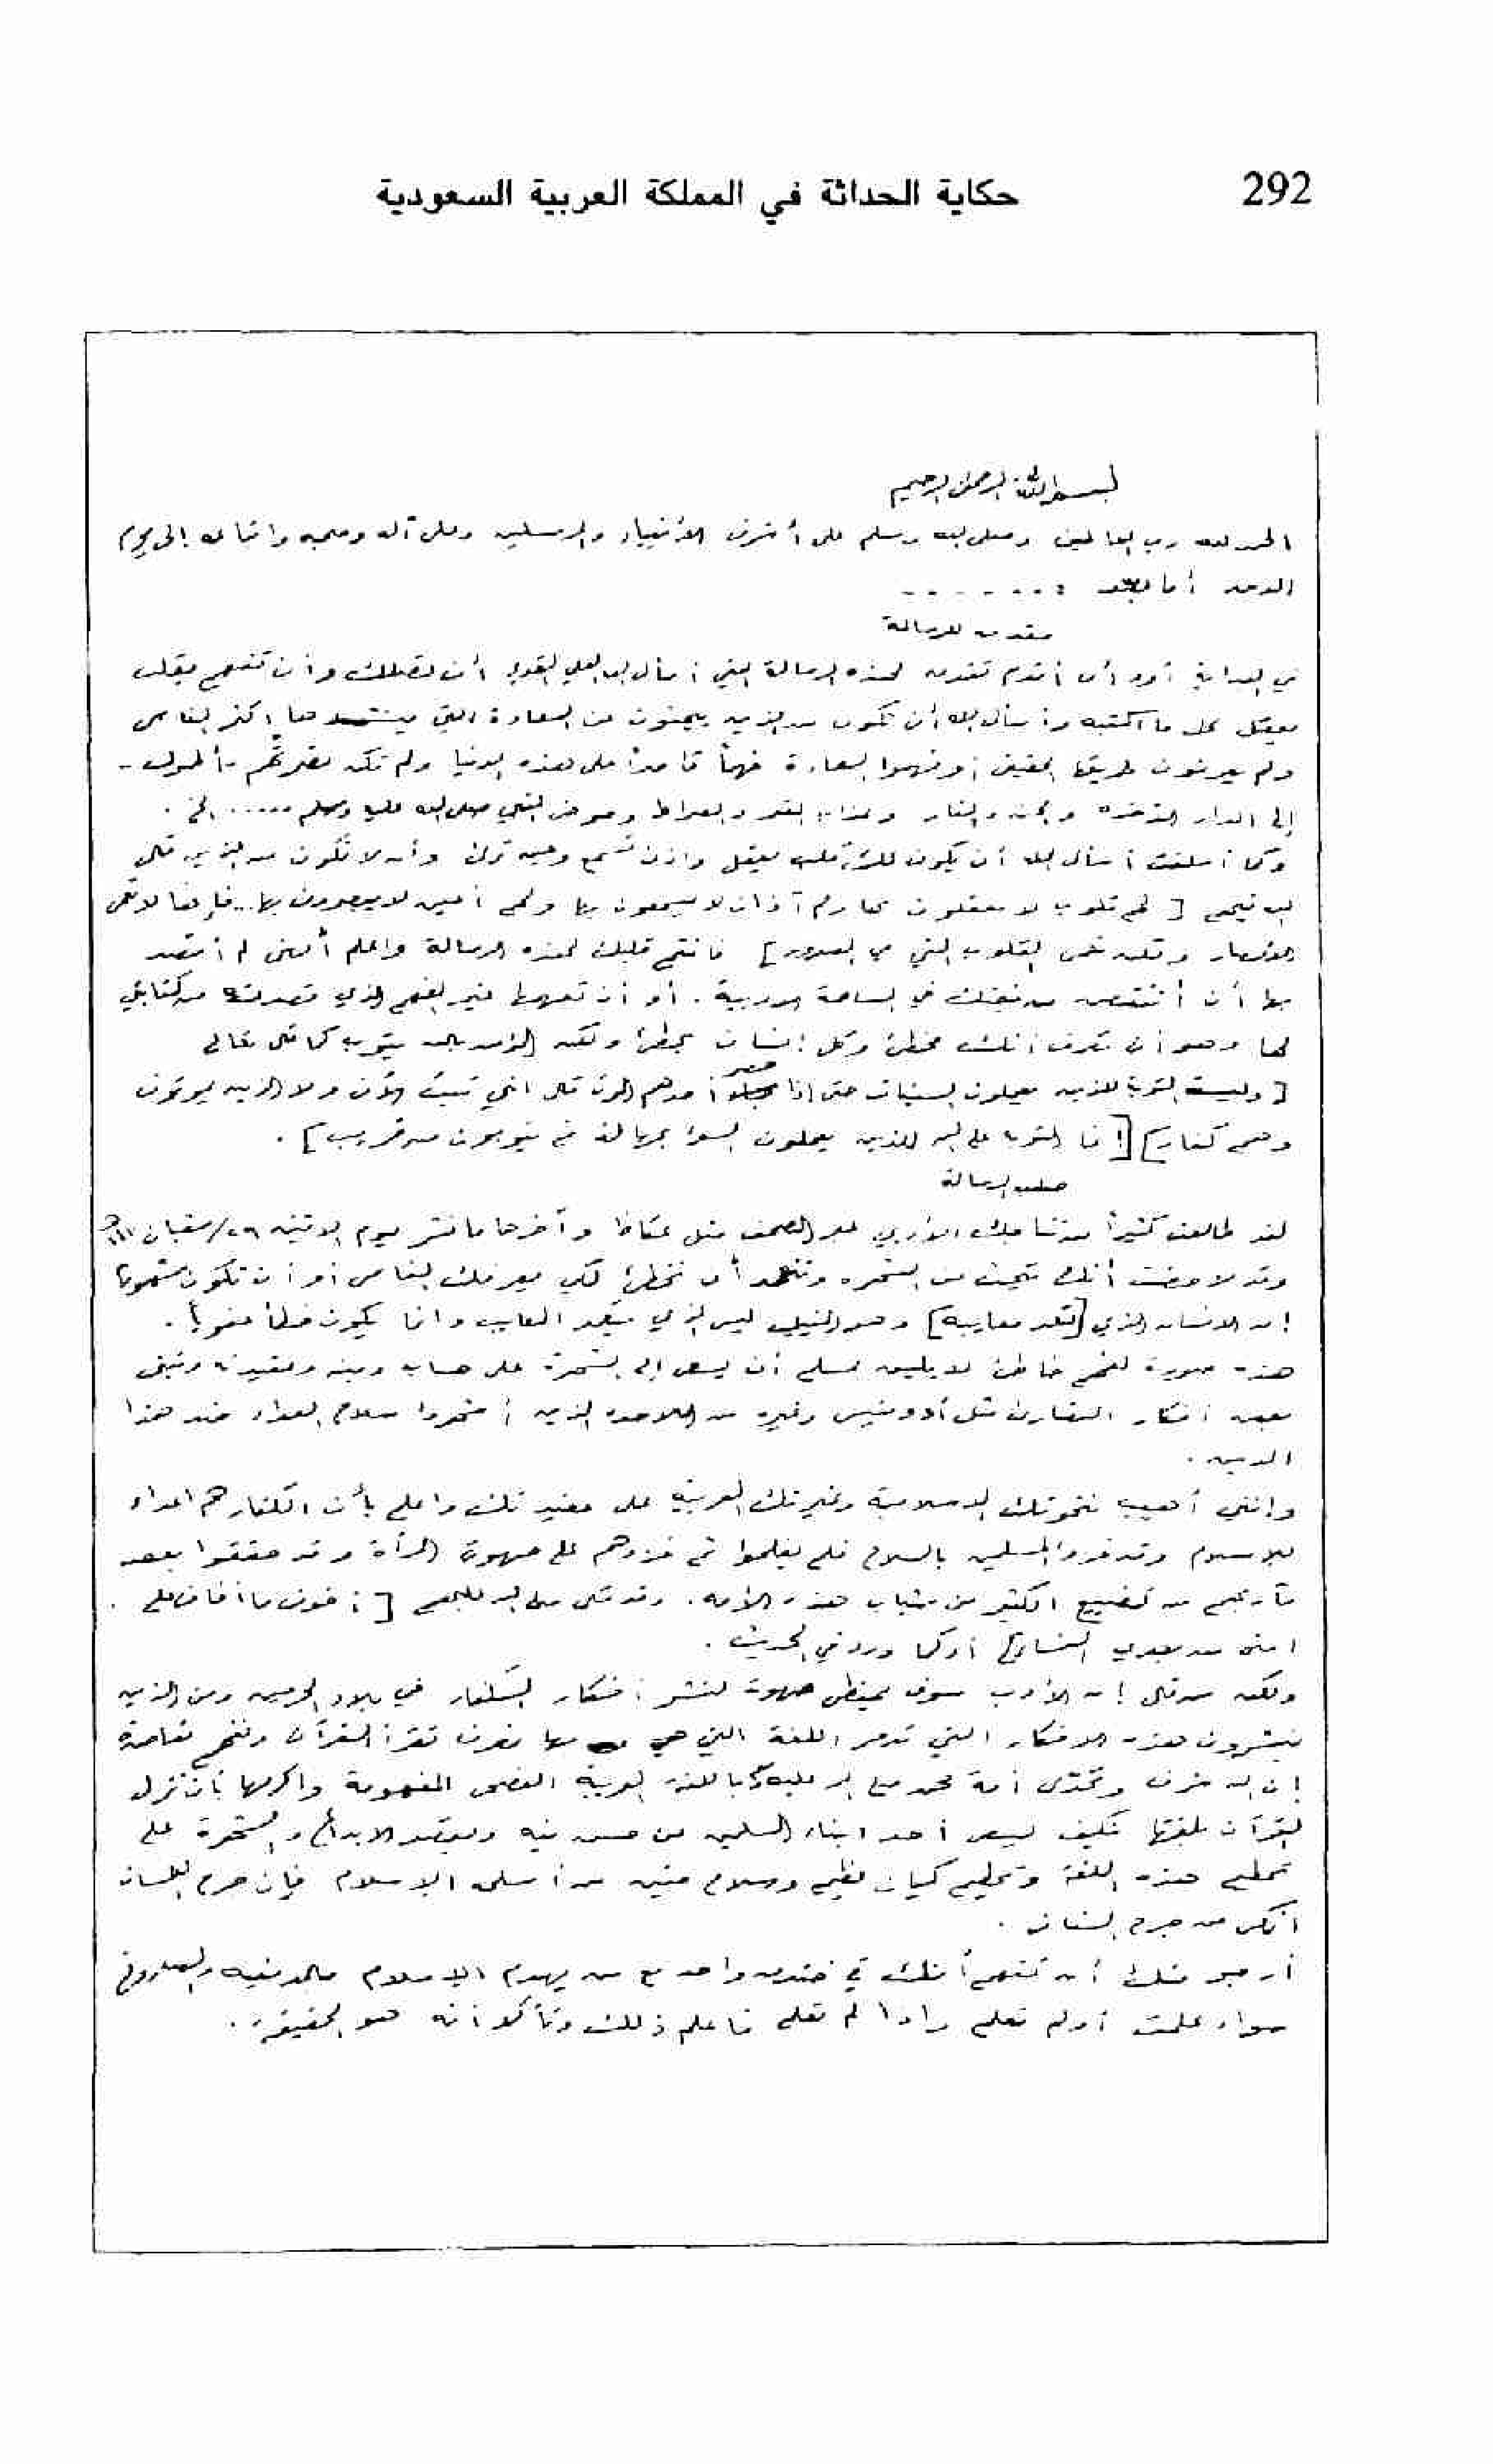 292
حكاية الحداثة في المملكة العربية السعودية
بسم الله الرحمن الرحيم
الحمد لله رب العالمين وصلى الله وسلم على أشرف الأنبياء والمرسلين وعلى آله وصحبه واتباعه إلى يوم
الدين أما بعد :.......
مقدمة الرسالة
في البداية أود أن أقدم تقدمة لهذه الرسالة التي أسأل الله العلي القوي أن تصلك وأن تتفهم بقلب
يعقل كل ما اكتبه وأسأل الله أن تكون من الذين يبحثون عن السعادة التي ينشدها اكثر الناس
ولم يعرفون طريقها الحقيقي أو فهموا السعادة فهماً قاصراً على هذه الدنيا ولم تكن نظرتهم بأطول -
إلى الدار الآخرة والجنة والنار وعذاب القبر والصراط وحوض النبي صلى الله عليه وسلم ..... الخ .
وكما أسلفت أسأل الله أن يكون لك قلب يعقل واذن تسمع وعين ترى وأن لا تكون من الذين قال
الله فيهم [ لهم قلوب لا يعقلون بها ولهم آذان لا يسمعون بها ولهم أعين لا يبصرون بها .. فإنها لا تعمى
الابصار ولكن تعمى القلوب التي في الصدور ] فافتح قلبك لهذه الرسالة واعلم أنني لم أقصد
بها أن أنتقص من ثقتك في الساحة الادبية . أو أن تفهمها غير الفهم الذي قصدته من كتابتي
لها وهو أن تعرف أنك مخطئ وكل إنسان يخطئ ولكن المؤمن بالله يتوب كما قال تعالى
[ وليست التوبة للذين يعملون السيئات حتى إذا حضر أحدهم الموت قال اني تبت الآن ولا الذين يموتون
وهم كفار ] [ إنما التوبة على الله للذين يعملون السوء بجهالة ثم يتوبون من قريب ] .
صلب الرسالة
لقد طالعت كثيراً من نتاجك الأدبي عبر الصحف مثل عكاظ وآخرها ما نشر يوم الاثنين ٢٩/شعبان
وقد لاحظت أنك تبحث عن الشهره وتتعمد أن تخطئ لكي يعرفك الناس أو أن تكون مشهوراً
إن الانسان الذي [ تعد معايبه ] وهو النبيل ليس الذي يتعمد المعايب وانما يكون خطأ عفوياً .
هذه صورة لفهم خاطئ لا يليق بمسلم أن يسعى إلى الشهرة على حساب دينه وعقيدته وتبني
بعض أفكار النصارى مثل أدونيس وغيره من الملاحدة الذين أشهروا سلاح العداء ضد هذا
الدين .
وإنني أهيب بنخوتك الإسلامية وغيرتك العربية على عقيدتك واعلم بأن الكفار هم اعداء
للإسلام وقد غزوا المسلمين بالسلاح فلم يفلحوا ثم غزوهم على صهوة المرأة وقد حققوا بعض
مآربهم من تضييع الكثير من شباب هذه الأمه . وقد قال صلى الله عليه وسلم [ أخوف ما أخاف على
امتي من بعدي النساء ] أو كما ورد في الحديث .
ولكن من قال إن الأدب سوف يمتطى صهوته لنشر أفكار الكفار في بلاد الحرمين ومن الذين
ينشرون هذه الافكار التي تدمر اللغة التي هي بها نعرف نقرأ القرآن ونفهم مقاصده
إن الله شرف وتحدى أمة محمد صلى الله عليه وسلم باللغة العربية الفصحى المفهومة واكرمها بأن نزل
القرآن بلغتها فكيف يسعى أحد ابناء المسلمين عن حسن نيه ويقصد الابداع والشهرة على
تحطيم هذه اللغة وتحطيم كيان عظيم وسلاح متين من أسلحة الإسلام فإن جرح اللسان
انكى من جرح السنان .
أرجو منك أن تتفهم أنك في خندق واحد مع من يهدم الإسلام
سواء علمت أو لم تعلم وإذا لم تعلم فاعلم ذلك وتأكد أنه هو الحقيقة .